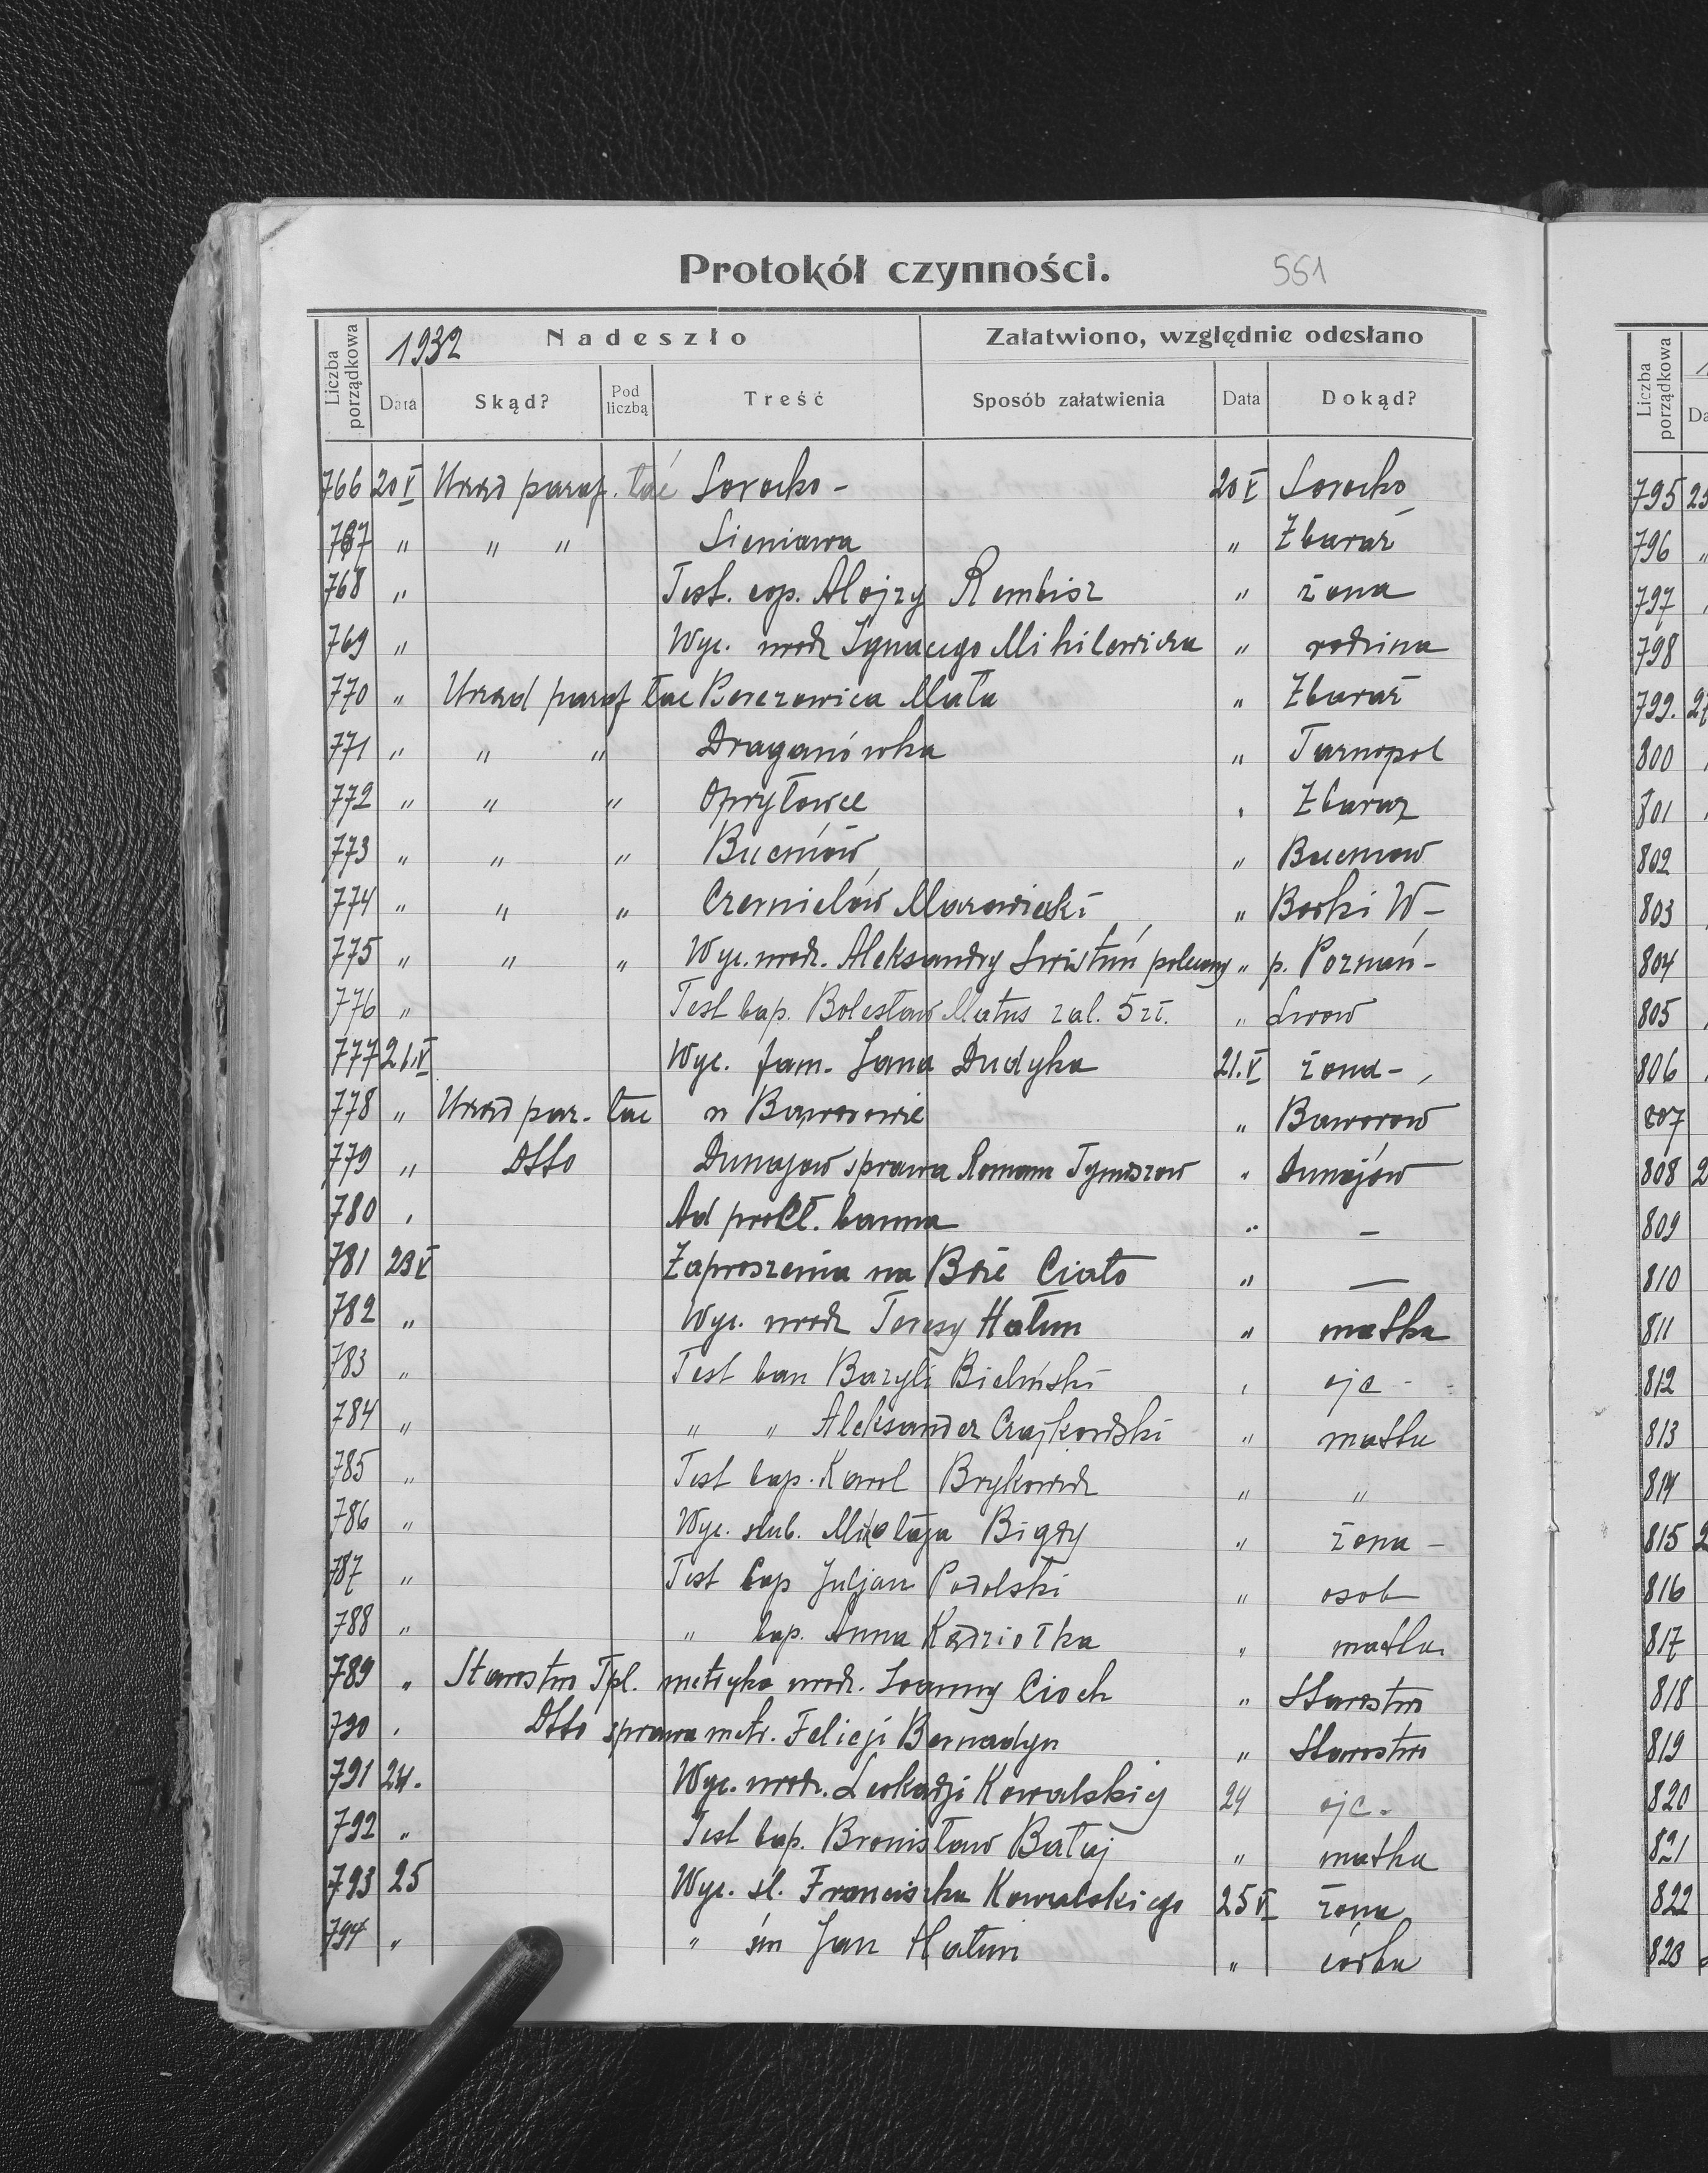 Protokół czynności. 551
Liczba porządkowa 1932 Nadeszło Załatwiono, względnie odesłano
Data Skąd? Pod liczbą Treść Sposób załatwienia Data Dokąd?
766 20 V Urząd paraf. łać Sorocko - 20 V Sorocko
767 " " " Sieniawa " Zbaraż
768 " Test. cop. Alojzy Rembisz " żona
769 " Wyc. urodz Ignacego Mihilewicza " rodzina
770 " Urząd paraf łac Berezowica Mała " Zbaraż
771 " " " Draganówka " Tarnopol
772 " " " Opryłowce " Zbaraż
773 " " " Bucniów " Bucniow
774 " " " Czernielów Mazowiecki " Borki W -
775 " " " Wyc. urodz. Aleksandry Świstuń polecony " p. Poznań -
776 " Test bap. Bolesław Matus zal. 5 zł. " Lwow
777 21.V Wyc. fam. Jana Dudyka 21.V żona -
778 " Urząd par. łac w Baworowie " Baworow
779 " Dtto Dunajow sprawa Romana Tymiszow " Dunajów
780 " Ad prot. banna " -
781 23 V Zaproszenia na Boże Ciało " —
782 " Wyc. urodz Teresy Hałun " matka
783 " Test ban Bazyli Bieliński " ojc -
784 " " " Aleksander Czajkowski " matka
785 " Test bap. Karol Brykowicz " "
786 " Wyc. slub. Mikołaja Bigdy " żona -
787 " Test bap Juljan Podolski " osob
788 " " bap. Anna Kędziołka " matka
789 " Starostwo Tpl. metryka urodz. Joanny Cioch " Starostwo
790 " Dtto sprawa metr. Felicji Bernadyn " Starostwo
791 24. Wyc. urodz. Leokadji Kowalskiej 24 ojc.
792 " Test bap. Bronisław Bałaj " matka
793 25 Wyc. sl. Franciszka Kowalskiego 25 V żona
794 " " śm Jan Hałun " córka
Liczba porządkowa
795
796 "
797
798
799. 27
800
801
802
803
804
805
806
807
808 2
809
810
811
812
813
814
815 2
816
817
818
819
820
821
822
823